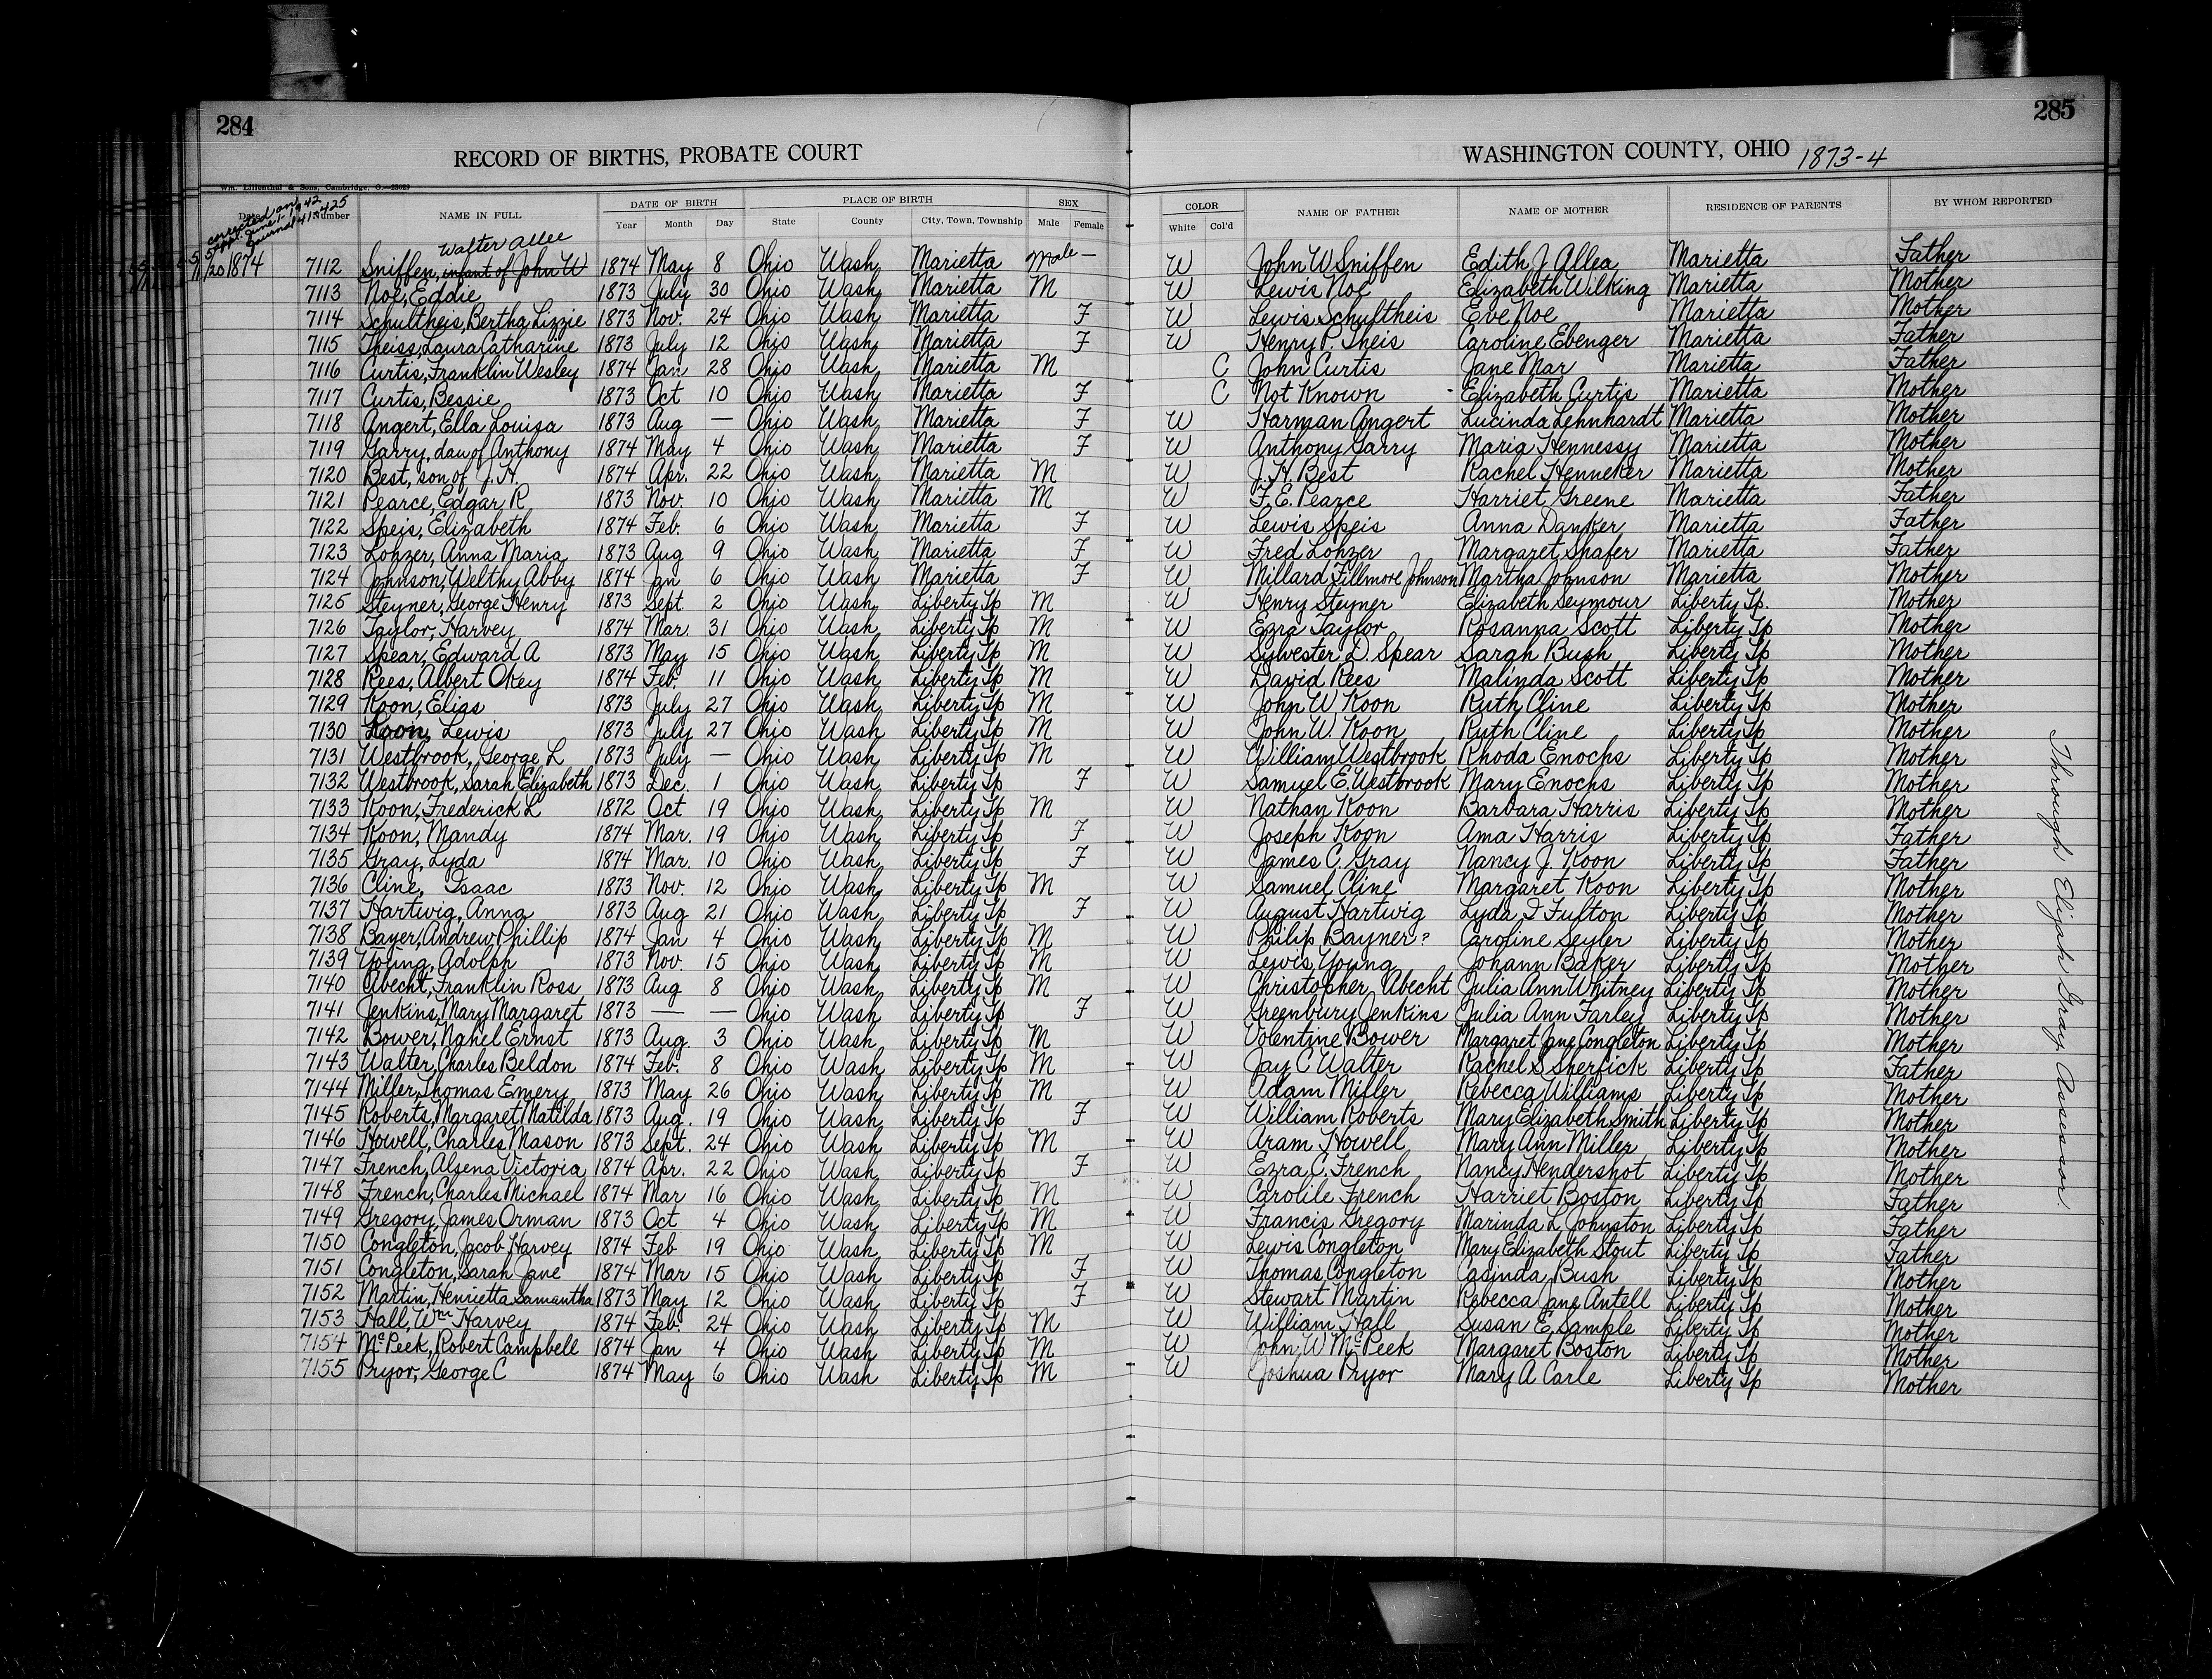 284
RECORD OF BIRTHS, PROBATE COURT
Wm. Lilienthal & Sons, Cambridge, O.—25029
corrected on
appl. June 1-1942
Journal 41-425
Date Number NAME IN FULL DATE OF BIRTH Year Month Day PLACE OF BIRTH State County City, Town, Township SEX Male Female
285
WASHINGTON COUNTY, OHIO 1873-4
COLOR White Col'd NAME OF FATHER NAME OF MOTHER RESIDENCE OF PARENTS BY WHOM REPORTED
Walter Allee
1874 7112 Sniffen, infant of John W 1874 May 8 Ohio Wash Marietta Male — W John W Sniffen Edith J Allea Marietta Father
7113 Noe, Eddie 1873 July 30 Ohio Wash Marietta M W Lewis Noe Elizabeth Wilking Marietta Mother
7114 Schultheis, Bertha Lizzie 1873 Nov. 24 Ohio Wash Marietta F W Lewis Schultheis Eve Noe Marietta Mother
7115 Theiss, Laura Catharine 1873 July 12 Ohio Wash Marietta F W Henry P. Theis Caroline Ebenger Marietta Father
7116 Curtis, Franklin Wesley 1874 Jan 28 Ohio Wash Marietta M C John Curtis Jane Mar Marietta Father
7117 Curtis, Bessie 1873 Oct 10 Ohio Wash Marietta F C Not Known Elizabeth Curtis Marietta Mother
7118 Angert, Ella Louisa 1873 Aug — Ohio Wash Marietta F W Harman Angert Lucinda Lehnhardt Marietta Mother
7119 Garry, dau of Anthony 1874 May 4 Ohio Wash Marietta F W Anthony Garry Maria Hennessy Marietta Mother
7120 Best, son of J. H. 1874 Apr. 22 Ohio Wash Marietta M W J. H. Best Rachel Henneker Marietta Mother
7121 Pearce, Edgar R 1873 Nov. 10 Ohio Wash Marietta M W F. E. Pearce Harriet Greene Marietta Father
7122 Speis, Elizabeth 1874 Feb. 6 Ohio Wash Marietta F W Lewis Speis Anna Danker Marietta Father
7123 Lohzer, Anna Maria 1873 Aug 9 Ohio Wash Marietta F W Fred Lohzer Margaret Shafer Marietta Father
7124 Johnson, Welthy Abby 1874 Jan 6 Ohio Wash Marietta F W Millard Fillmore Johnson Martha Johnson Marietta Mother
7125 Steyner, George Henry 1873 Sept. 2 Ohio Wash Liberty Tp M W Henry Steyner Elizabeth Seymour Liberty Tp. Mother
7126 Taylor, Harvey 1874 Mar. 31 Ohio Wash Liberty Tp M W Ezra Taylor Rosanna Scott Liberty Tp Mother
7127 Spear, Edward A 1873 May 15 Ohio Wash Liberty Tp M W Sylvester D. Spear Sarah Bush Liberty Tp Mother
7128 Rees, Albert Okey 1874 Feb. 11 Ohio Wash Liberty Tp M W David Rees Malinda Scott Liberty Tp Mother
7129 Koon, Elias 1873 July 27 Ohio Wash Liberty Tp M W John W Koon Ruth Cline Liberty Tp Mother
7130 Koon, Lewis 1873 July 27 Ohio Wash Liberty Tp M W John W. Koon Ruth Cline Liberty Tp Mother
7131 Westbrook, George L 1873 July — Ohio Wash Liberty Tp M W William Westbrook Rhoda Enochs Liberty Tp Mother
7132 Westbrook, Sarah Elizabeth 1873 Dec. 1 Ohio Wash Liberty Tp F W Samuel E. Westbrook Mary Enochs Liberty Tp Mother
7133 Koon, Frederick L 1872 Oct 19 Ohio Wash Liberty Tp M W Nathan Koon Barbara Harris Liberty Tp Mother
7134 Koon, Mandy 1874 Mar. 19 Ohio Wash Liberty Tp F W Joseph Koon Ama Harris Liberty Tp Father
7135 Gray, Lyda 1874 Mar. 10 Ohio Wash Liberty Tp F W James C. Gray Nancy J. Koon Liberty Tp Father
7136 Cline, Isaac 1873 Nov. 12 Ohio Wash Liberty Tp M W Samuel Cline Margaret Koon Liberty Tp Mother
7137 Hartwig, Anna 1873 Aug 21 Ohio Wash Liberty Tp F W August Hartwig Lyda I Fulton Liberty Tp Mother
7138 Bayer, Andrew Phillip 1874 Jan 4 Ohio Wash Liberty Tp M W Philip Bayner? Caroline Seyler Liberty Tp Mother
7139 Young, Adolph 1873 Nov. 15 Ohio Wash Liberty Tp M W Lewis Young Johann Baker Liberty Tp Mother
7140 Abecht, Franklin Ross 1873 Aug 8 Ohio Wash Liberty Tp M W Christopher Abecht Julia Ann Whitney Liberty Tp Mother
7141 Jenkins, Mary Margaret 1873 — — Ohio Wash Liberty Tp F W Greenbury Jenkins Julia Ann Farley Liberty Tp Mother
7142 Bower, Nahel Ernst 1873 Aug. 3 Ohio Wash Liberty Tp M W Volentine Bower Margaret Jane Congleton Liberty Tp Mother
7143 Walter, Charles Beldon 1874 Feb. 8 Ohio Wash Liberty Tp M W Jay C Walter Rachel S Sherfick Liberty Tp Father
7144 Miller, Thomas Emery 1873 May 26 Ohio Wash Liberty Tp M W Adam Miller Rebecca Williams Liberty Tp Mother
7145 Roberts, Margaret Matilda 1873 Aug. 19 Ohio Wash Liberty Tp F W William Roberts Mary Elizabeth Smith Liberty Tp Mother
7146 Howell, Charles Mason 1873 Sept. 24 Ohio Wash Liberty Tp M W Aram Howell Mary Ann Miller Liberty Tp Mother
7147 French, Alsena Victoria 1874 Apr. 22 Ohio Wash Liberty Tp F W Ezra C. French Nancy Hendershot Liberty Tp Mother
7148 French, Charles Michael 1874 Mar 16 Ohio Wash Liberty Tp M W Carolile French Harriet Boston Liberty Tp Father
7149 Gregory, James Orman 1873 Oct 4 Ohio Wash Liberty Tp M W Francis Gregory Marinda L Johnston Liberty Tp Father
7150 Congleton, Jacob Harvey 1874 Feb 19 Ohio Wash Liberty Tp M W Lewis Congleton Mary Elizabeth Stout Liberty Tp Father
7151 Congleton, Sarah Jane 1874 Mar 15 Ohio Wash Liberty Tp F W Thomas Congleton Casinda Bush Liberty Tp Mother
7152 Martin, Henrietta Samantha 1873 May 12 Ohio Wash Liberty Tp F W Stewart Martin Rebecca Jane Antell Liberty Tp Mother
7153 Hall, Wm Harvey 1874 Feb. 24 Ohio Wash Liberty Tp M W William Hall Susan E, Sample Liberty Tp Mother
7154 McPeek, Robert Campbell 1874 Jan 4 Ohio Wash Liberty Tp M W John W McPeek Margaret Boston Liberty Tp Mother
7155 Pryor, George C 1874 May 6 Ohio Wash Liberty Tp M W Joshua Pryor Mary A Carle Liberty Tp Mother
Through Elijah Gray Assessor.